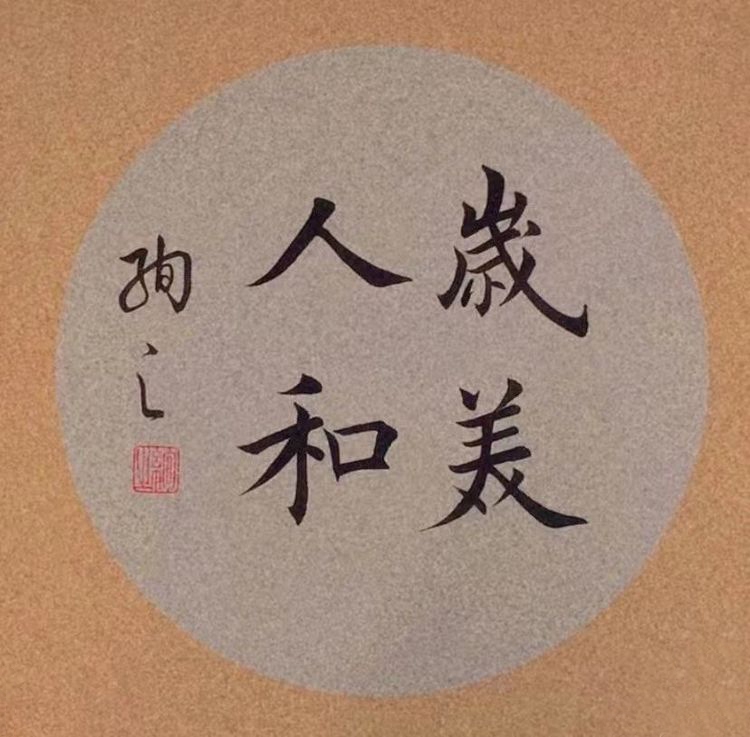 歲美
人和
絢之